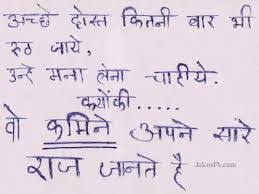 अच्छे दोस्त कितनी बार भी
रुठ जाये,
उन्हे मना लेना चाहीये.
क्योंकी......
वो कमिने अपने सारे
राज जानते है
JokesPb.com